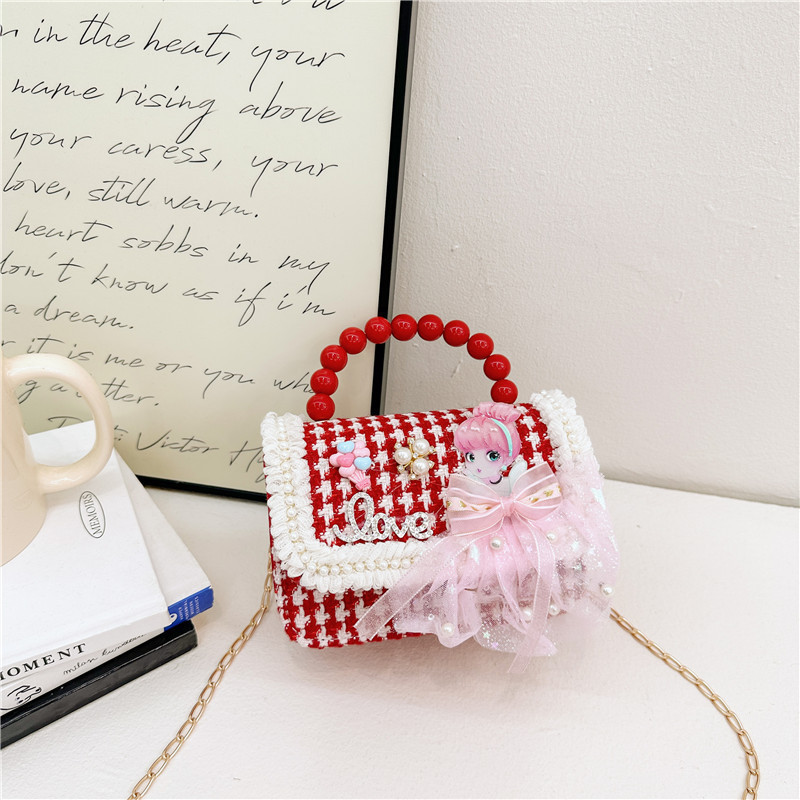 in the heat, your
name rising above
your caress, your
love, still warm.
heart sobbs in my
don't know as if i'm
a dream.
r it is me or you wh
g a letter.
Victor Hu
love
MEMOIRS
MOMENT
milan